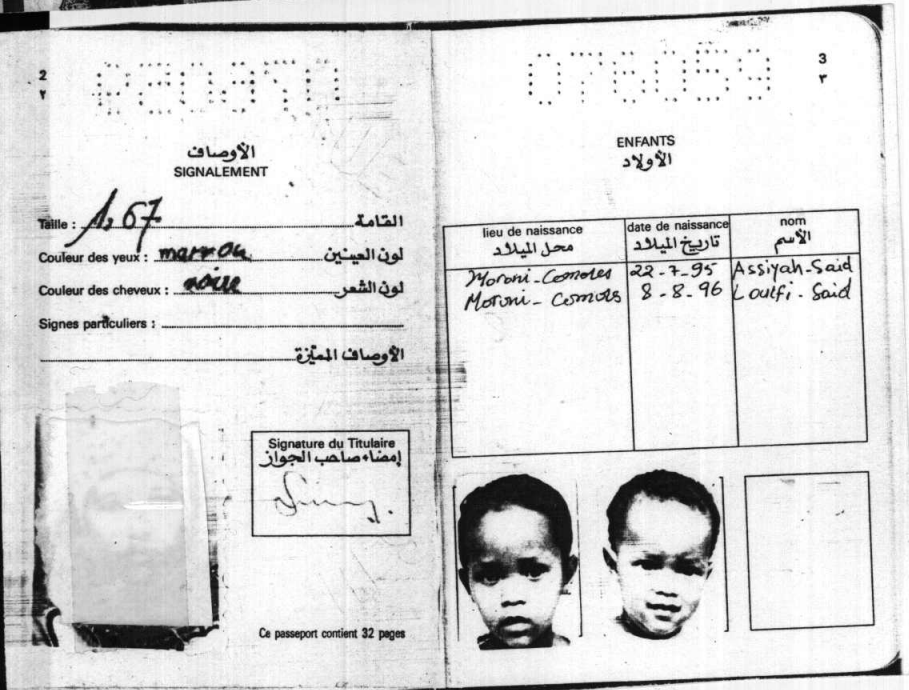 2
٢
076059
الأوصاف
SIGNALEMENT
Taille : 1,67 القامة
Couleur des yeux : marron لون العينين
Couleur des cheveux : noire لون الشعر
Signes particuliers :
الأوصاف المميّزة
Signature du Titulaire
إمضاء صاحب الجواز
Ce passeport contient 32 pages
3
٣
076059
ENFANTS
الأولاد
lieu de naissance date de naissance nom
محل الميلاد تاريخ الميلاد الأسم
Moroni-Comores 22-7-95 Assiyah-Said
Moroni-Comores 8-8-96 Loulfi-Said